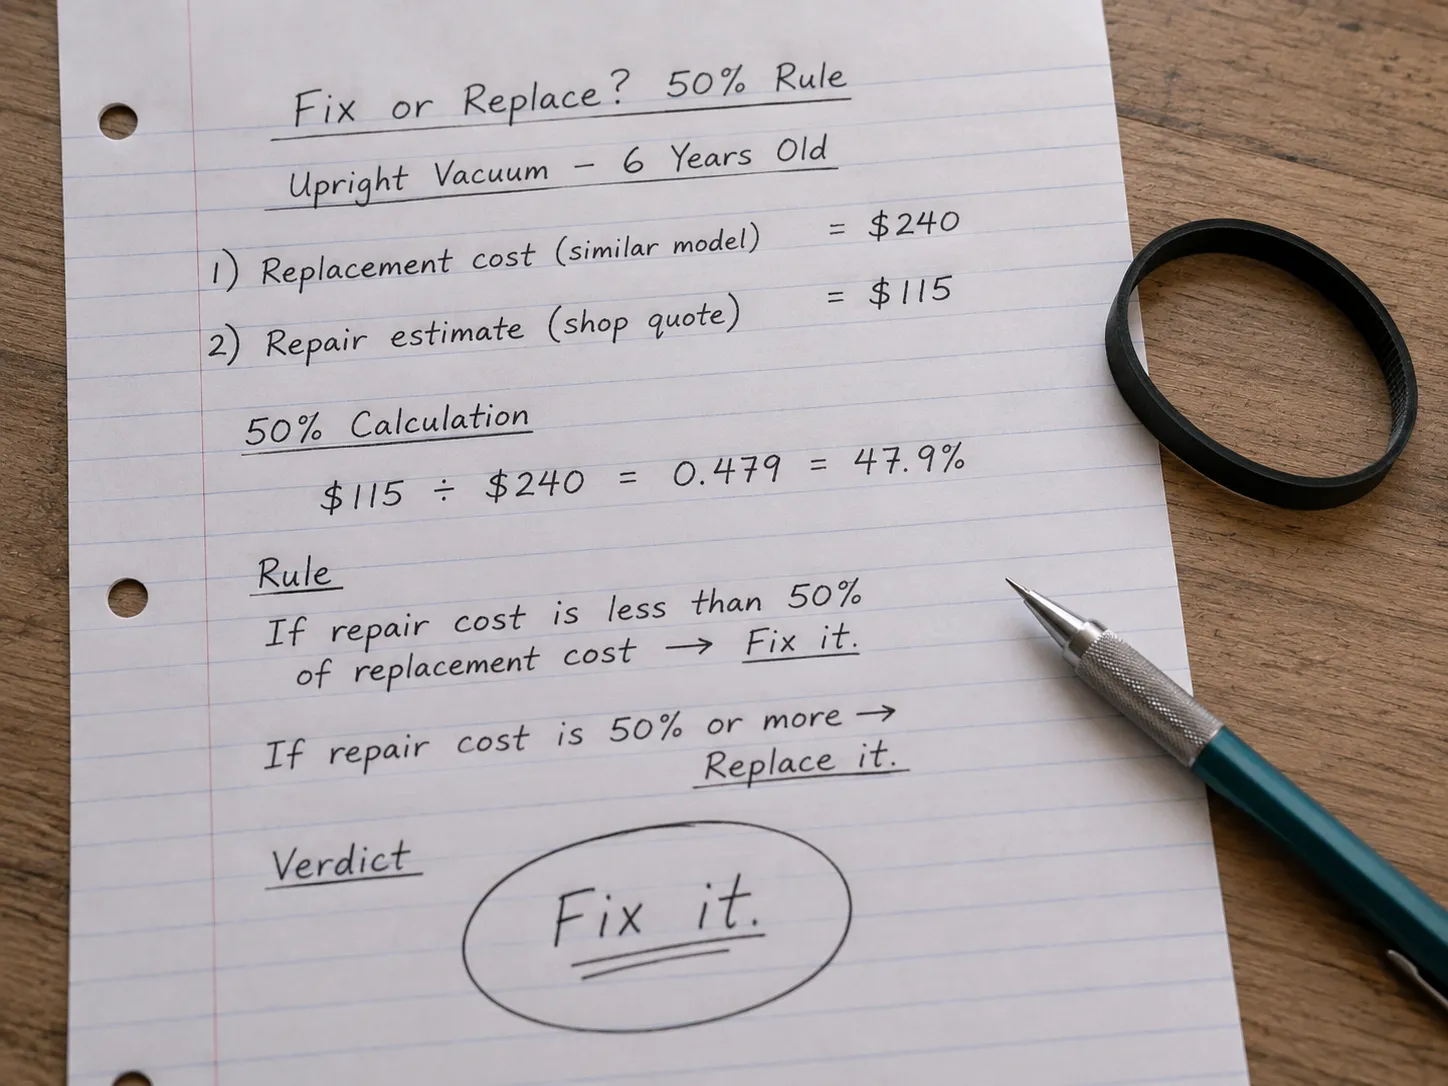 Fix or Replace? 50% Rule
Upright Vacuum – 6 Years Old
1) Replacement cost (similar model) = $240
2) Repair estimate (shop quote) = $115
50% Calculation
$115 ÷ $240 = 0.479 = 47.9%
Rule
If repair cost is less than 50%
of replacement cost → Fix it.
If repair cost is 50% or more →
Replace it.
Verdict
Fix it.